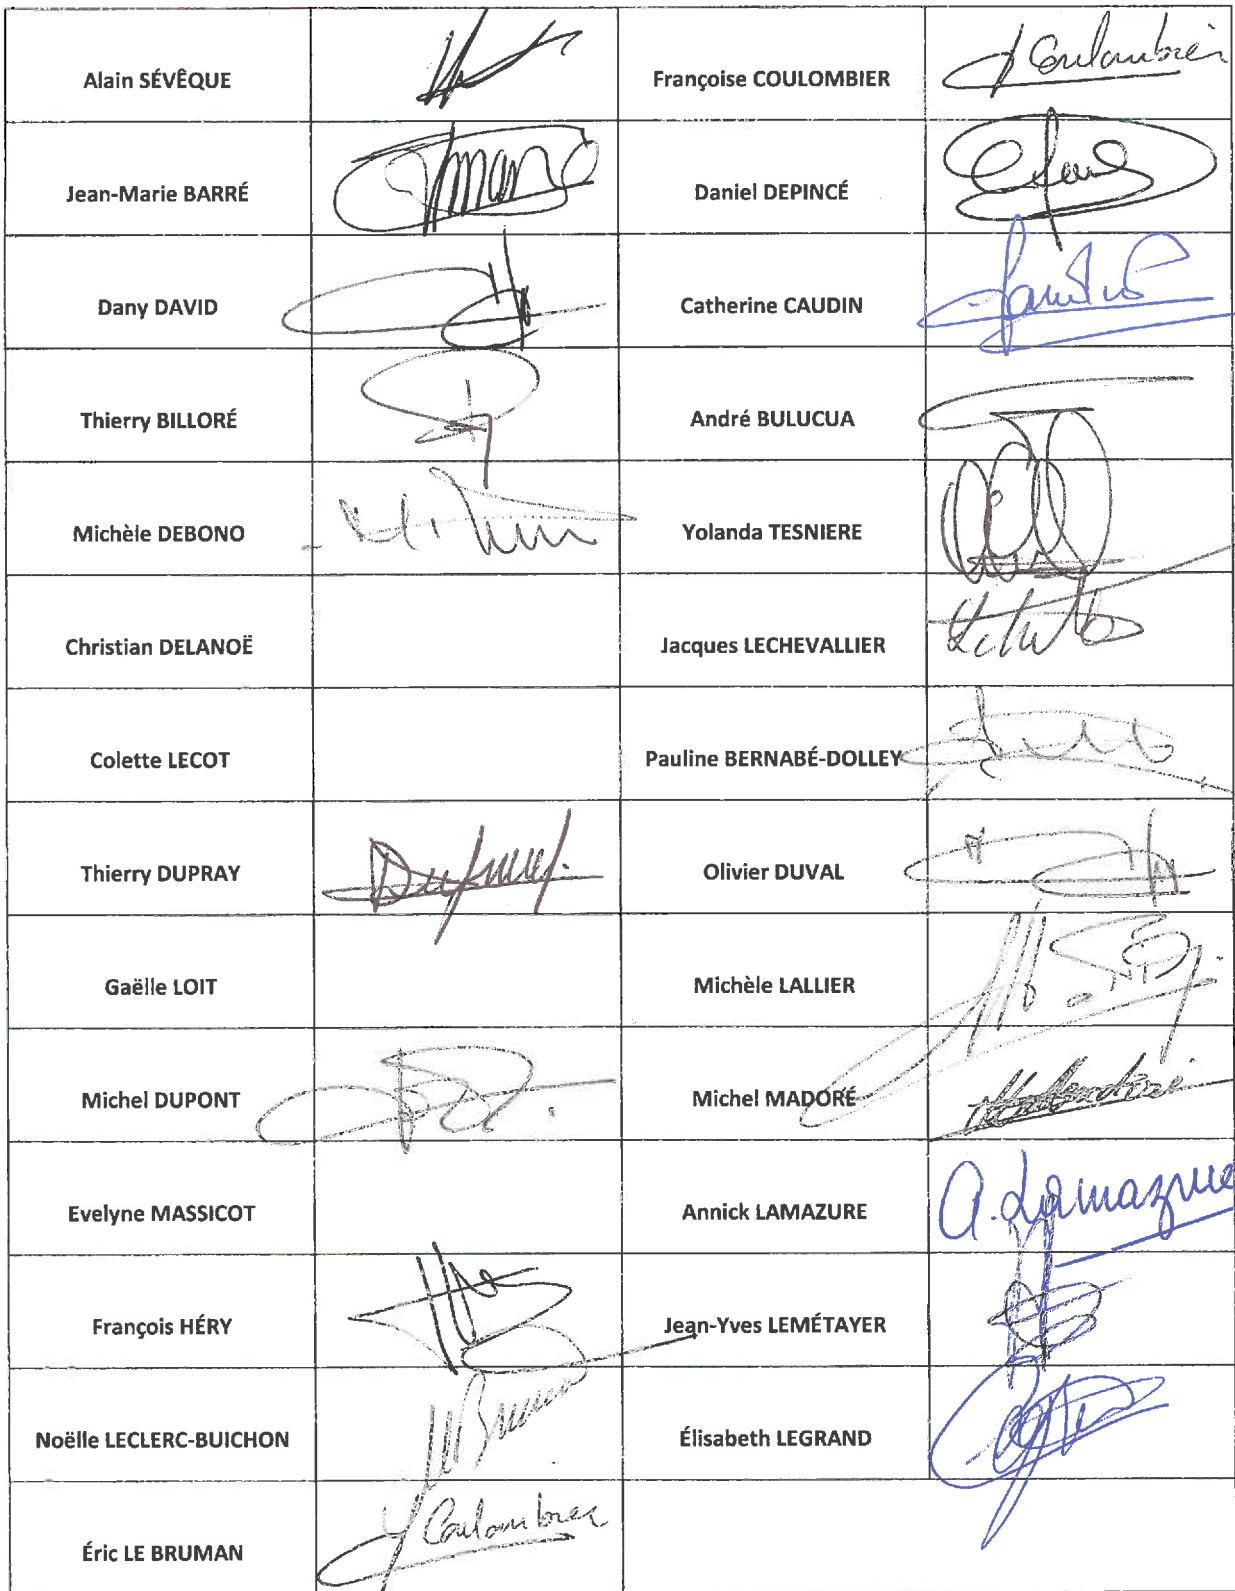 Alain SÉVÊQUE
Françoise COULOMBIER
Coulombier
Jean-Marie BARRÉ
Daniel DEPINCÉ
Dany DAVID
Catherine CAUDIN
Thierry BILLORÉ
André BULUCUA
Michèle DEBONO
Yolanda TESNIERE
Christian DELANOË
Jacques LECHEVALLIER
Colette LECOT
Pauline BERNABÉ-DOLLEY
Thierry DUPRAY
Olivier DUVAL
Gaëlle LOIT
Michèle LALLIER
Michel DUPONT
Michel MADORÉ
Evelyne MASSICOT
Annick LAMAZURE
A. Lamazure
François HÉRY
Jean-Yves LEMÉTAYER
Noëlle LECLERC-BUICHON
Élisabeth LEGRAND
Éric LE BRUMAN
Coulombier